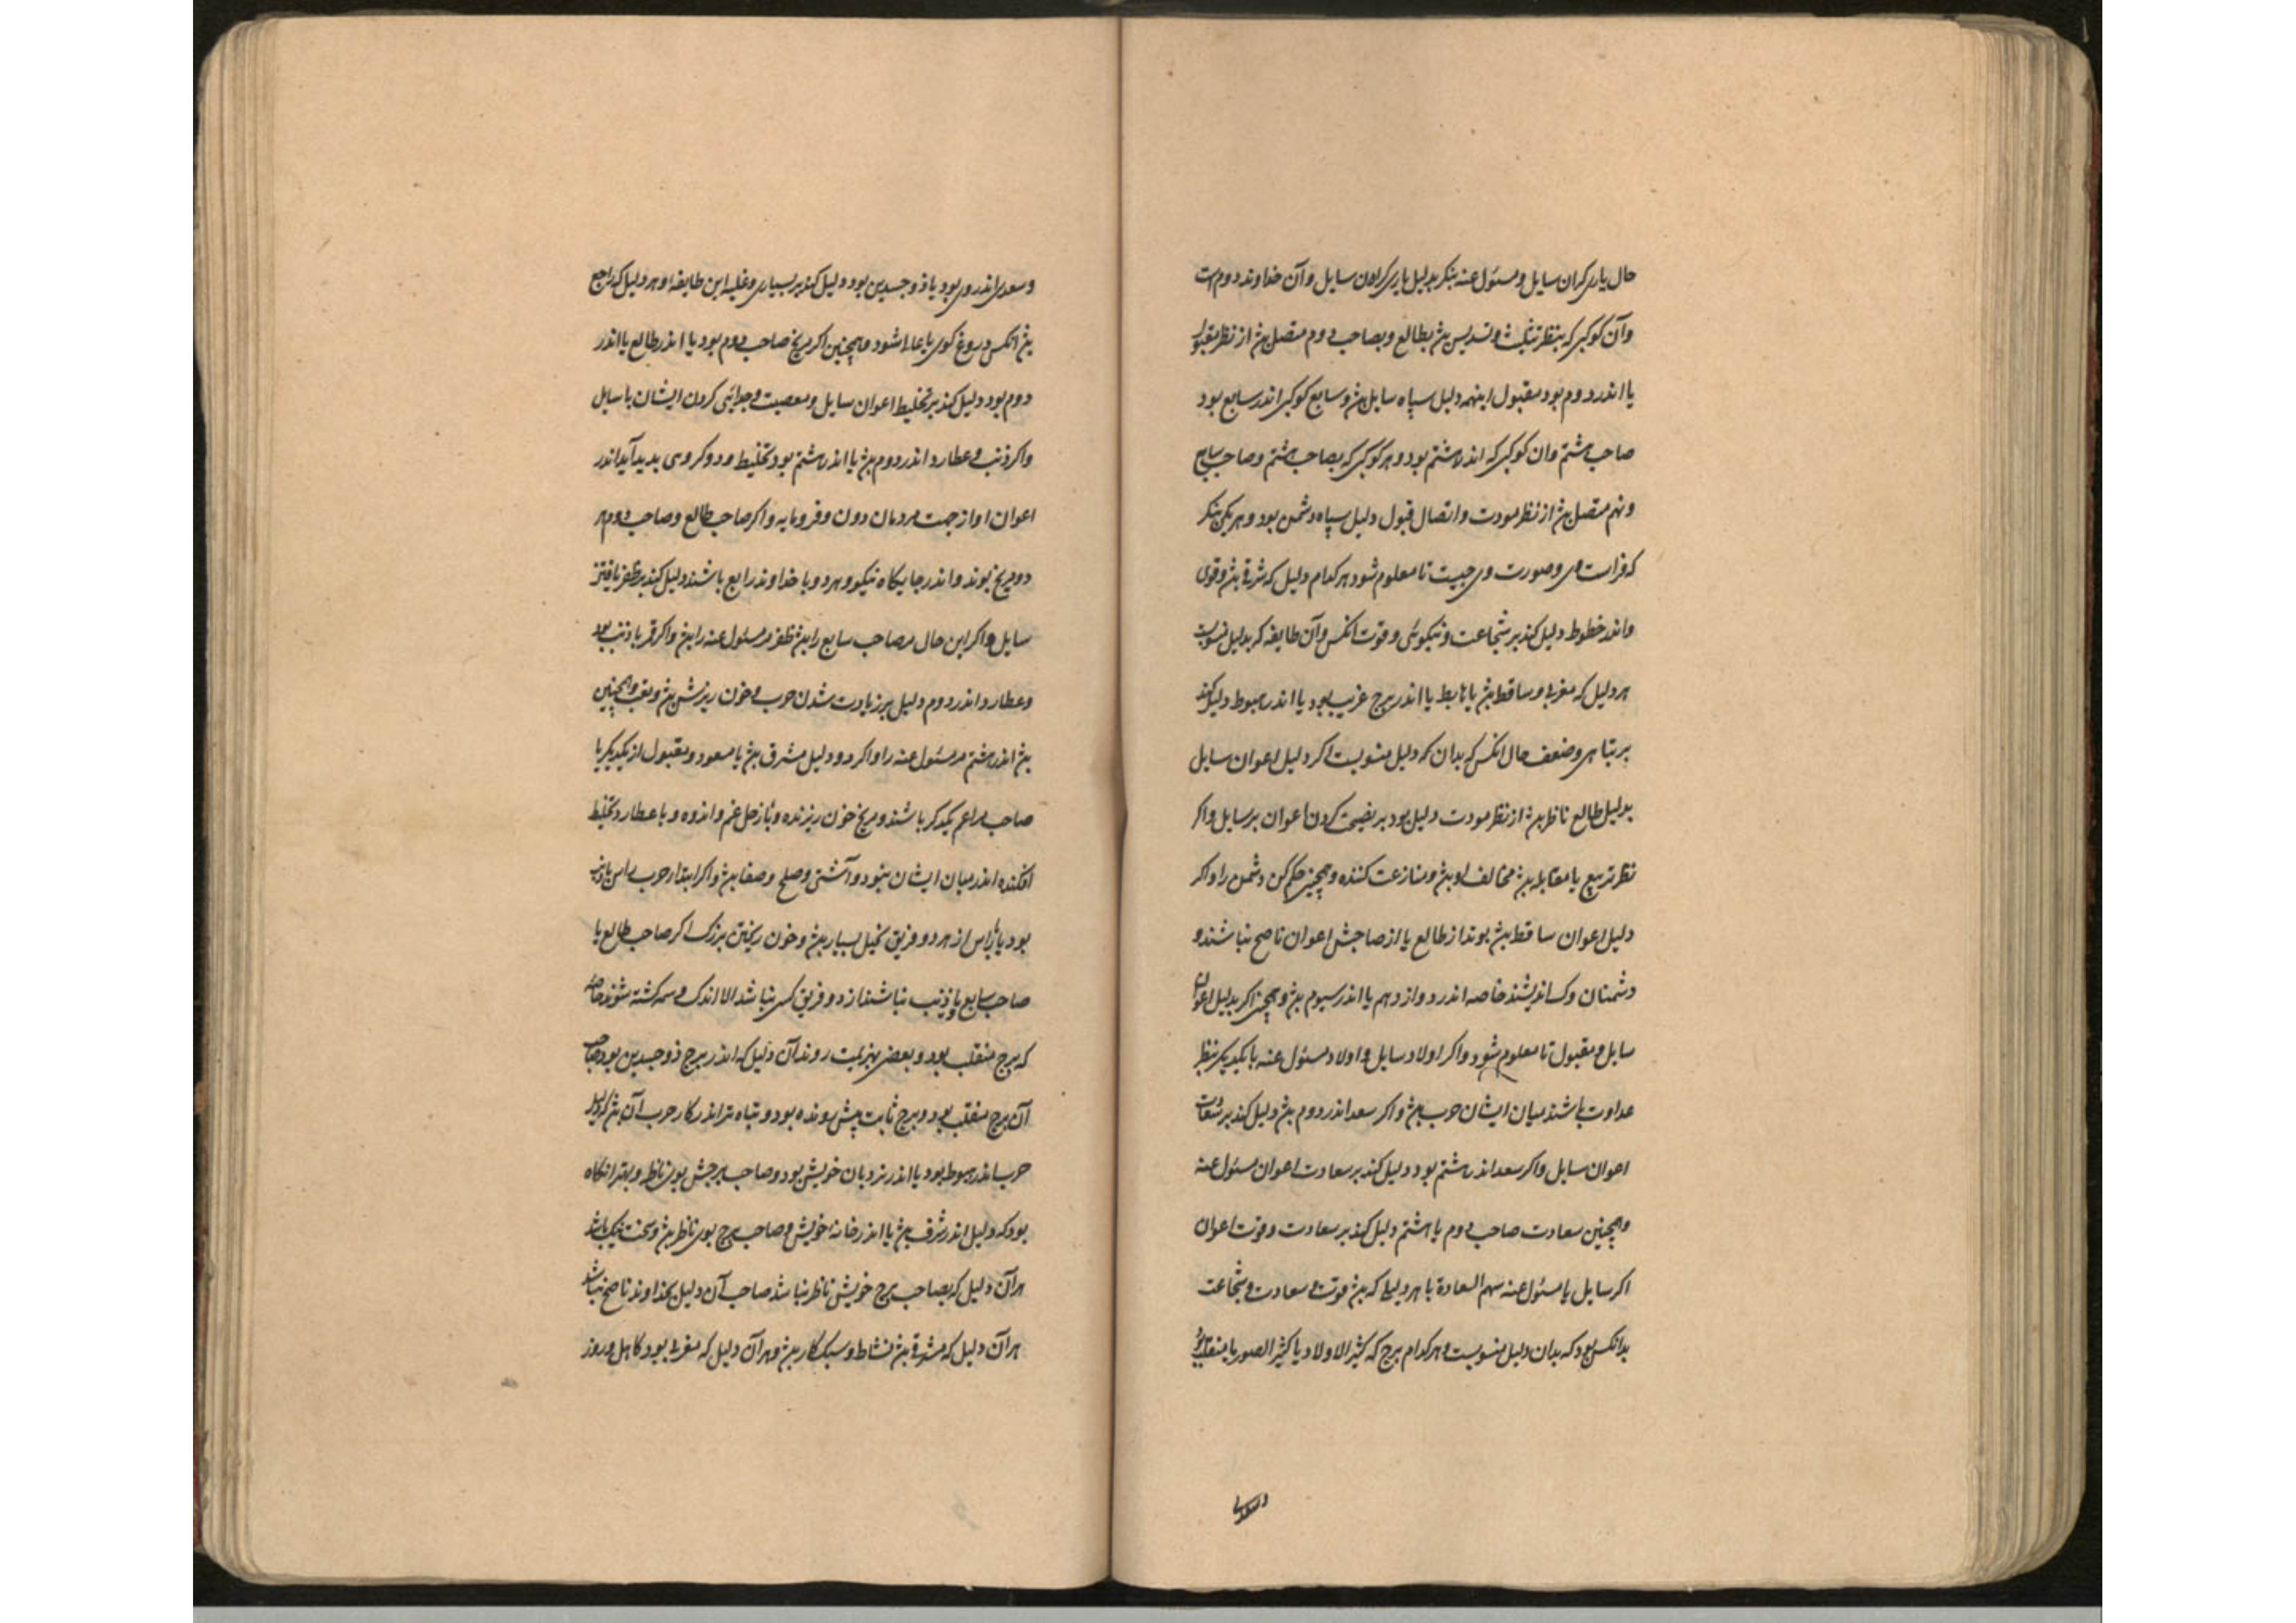 حال یاری کران سایل و مسئول عنه بنکر بدلیل یاری کران سایل وآن خداوند دوم است
وآن کوکبی که بنظر تثلیث و تسدیس بود بطالع و بصاحب دوم متصل بود از نظر مقبول
یا اندر دوم بود مقبول اینهمه دلیل سپاه سایل بود و سابع کوکبی اندر سابع بود
صاحب هشتم وان کوکبی که اندر هشتم بود و هر کوکبی که بصاحب هشتم و صاحب سابع
ونهم متصل بود از نظر مودت و اتصال قبول دلیل سپاه دشمن بود و هر یکی بنکر
که فراست وی و صورت وی چیست تا معلوم شود هر کدام دلیل که شرقی بود وقوی
واندر حظوظ دلیل کند بر شجاعت و نیکوئی و قوت انکس وآن طایفه که بدلیل منسوبست
هر دلیل که مغربی و ساقط بود یا هابط یا اندر برج غریب بود یا اندر هبوط دلیل کند
بر تباهی وضعف حال انکس که بدان دلیل منسوبست اکر دلیل اعوان سایل
بدلیل طالع ناظر بود از نظر مودت دلیل بود بر نصیحت کردن اعوان بر سایل واکر
نظر تربیع یا مقابله بود مخالف او بود و منازعت کننده و همچنین حکم کن دشمن را واکر
دلیل اعوان ساقط بوند از طالع یا از صاحبش اعوان ناصح نباشند و
دشمنان وک اندیشند خاصه اندر دوازدهم یا اندر سیوم بود و همچنین اکر بدلیل اعوان
سایل و مقبول تا معلوم شود واکر اولاد سایل و اولاد مسئول عنه با یکدیکر بنظر
عداوت باشند میان ایشان حرب بود واکر سعد اندر دوم بود دلیل کند بر سعادت
اعوان سایل واکر سعد اندر هشتم بود دلیل کند بر سعادت اعوان مسئول عنه
وهمچنین سعادت صاحب دوم یا هشتم دلیل کند بر سعادت وقوت اعوان
اکر سایل یا مسئول عنه سهم السعادة با هر دلیل که بود قوت و سعادت و شجاعت
بدانکس بود که بدان دلیل منسوبست و هر کدام برج که کثیر الاولاد یا کثیر الصور یا منقلب بود
وسعدی
وسعدی اندر وی بود یا ذو جسدین بود دلیل کند بر بسیاری وغلبه این طایفه او هر دلیل که راجع
بود انکس دروغ کوی یا شود و همچنین اکر مریخ صاحب دوم بود یا اندر طالع یا اندر
دوم بود دلیل کند بر تخلیط اعوان سایل و معصیت و جدائی کردن ایشان با سایل
واکر ذنب و عطارد اندر دوم بود یا اندر هشتم بود تخلیط و دو کروهی پدید آید اندر
اعوان او از جهت مردمان دون و فرومایه واکر صاحب طالع و صاحب دوم هر
دو مریخ بوند و اندر جایکاه نیکو و هر دو با خداوند رابع باشند دلیل کند بر ظفر یافتن
سایل واکر این حال مر صاحب سابع را بود ظفر مر مسئول عنه را بود واکر قمر با ذنب بود
وعطارد اندر دوم دلیل بر زیادت شدن حرب و خون ریزش بود وهمچنین
بود اندر هشتم مر مسئول عنه را واکر دو دلیل مشرقی بود یا مسعود و مقبول از یکدیکر یا
صاحب مزاعم یکدکر باشند و مریخ خون ریزنده و باز زحل غم و اندوه و با عطارد تخلیط
افکنده اندر میان ایشان بنود و آشتی و صلح و صفا بود واکر ابتداء حرب راس یا ذنب
بود یا راس از هر دو فریق بسیار بود و خون ریختن بزرک اکر صاحب طالع یا
صاحب سابع با ذنب نباشند از دو فریق کسی نباشد الا اندک و همه کشته شوند خاصه
که برج منقلب بود و بعضی بهزیمت روند آن دلیل که اندر برج ذو جسدین بود خاصه
آن برج منقلب بود و برج ثابت پیش رونده بود و تباه تر اندر کار حرب آن بود که دلیل
حرب اندر هبوط بود یا اندر نردبان خویش بود و صاحب برجش بوی ناظر و بهتر انکاه
بود که دلیل اندر شرف بود یا اندر خانه خویش و صاحب برج بوی ناظر بود و سخت نیک باشد
هر آن دلیل که بصاحب برج خویش ناظر نباشد صاحب آن دلیل بخداوند ناصح نباشد
هر آن دلیل که مشرقی بود نشاط و سبک کار بود و هر آن دلیل که مغربی بود کاهل و روز